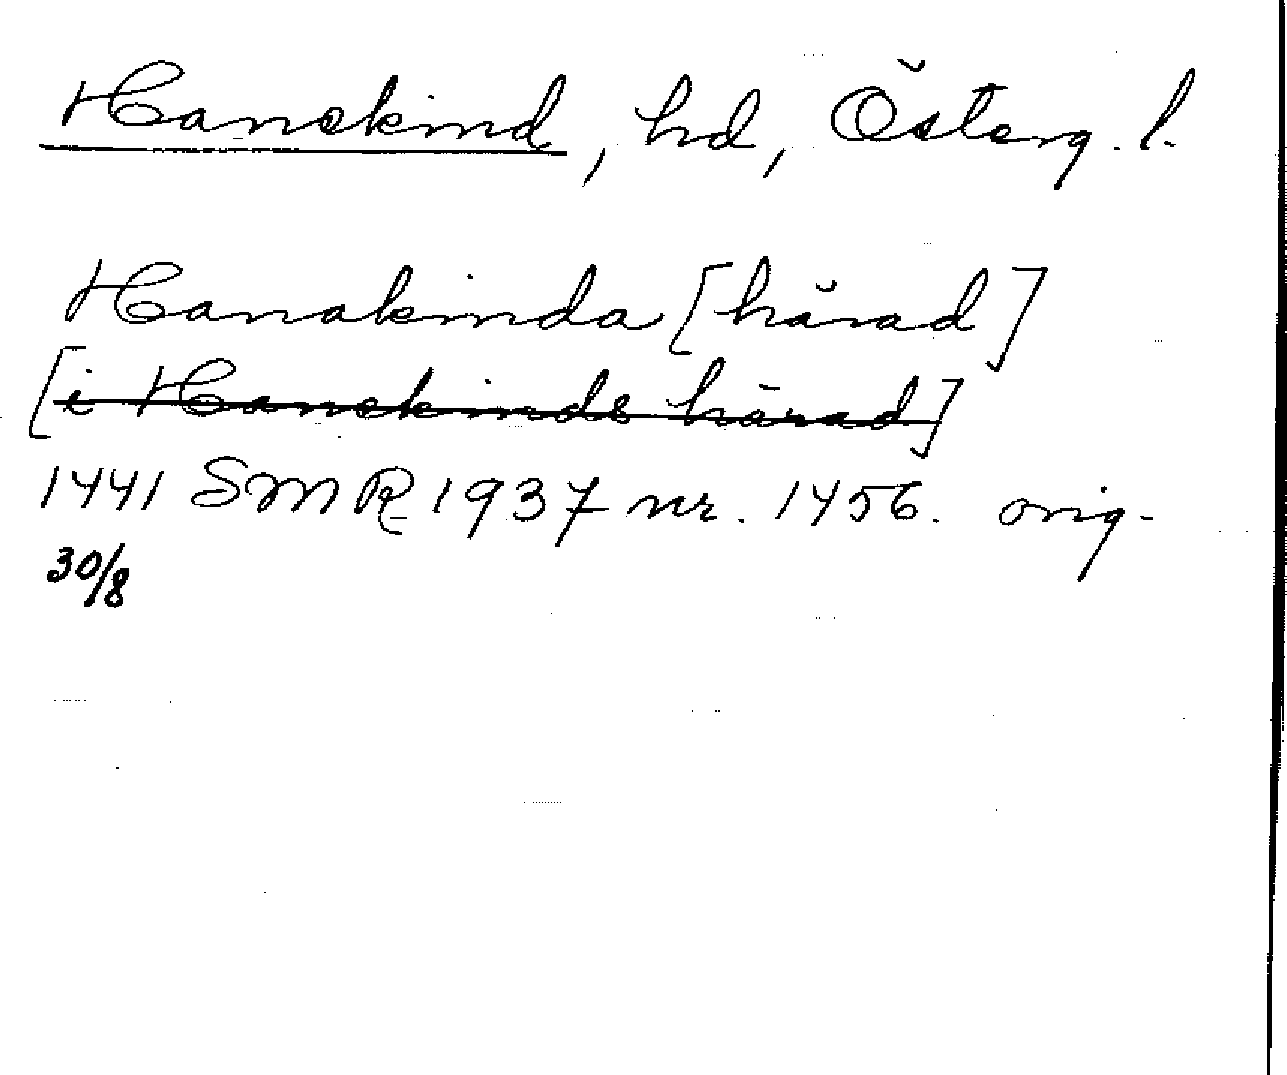 Hanekind, hd, Österg. l.
Hanakinda [härad]
[i Hanekinds härad]
1441 SMR 1937 nr. 1456. orig.
30/8